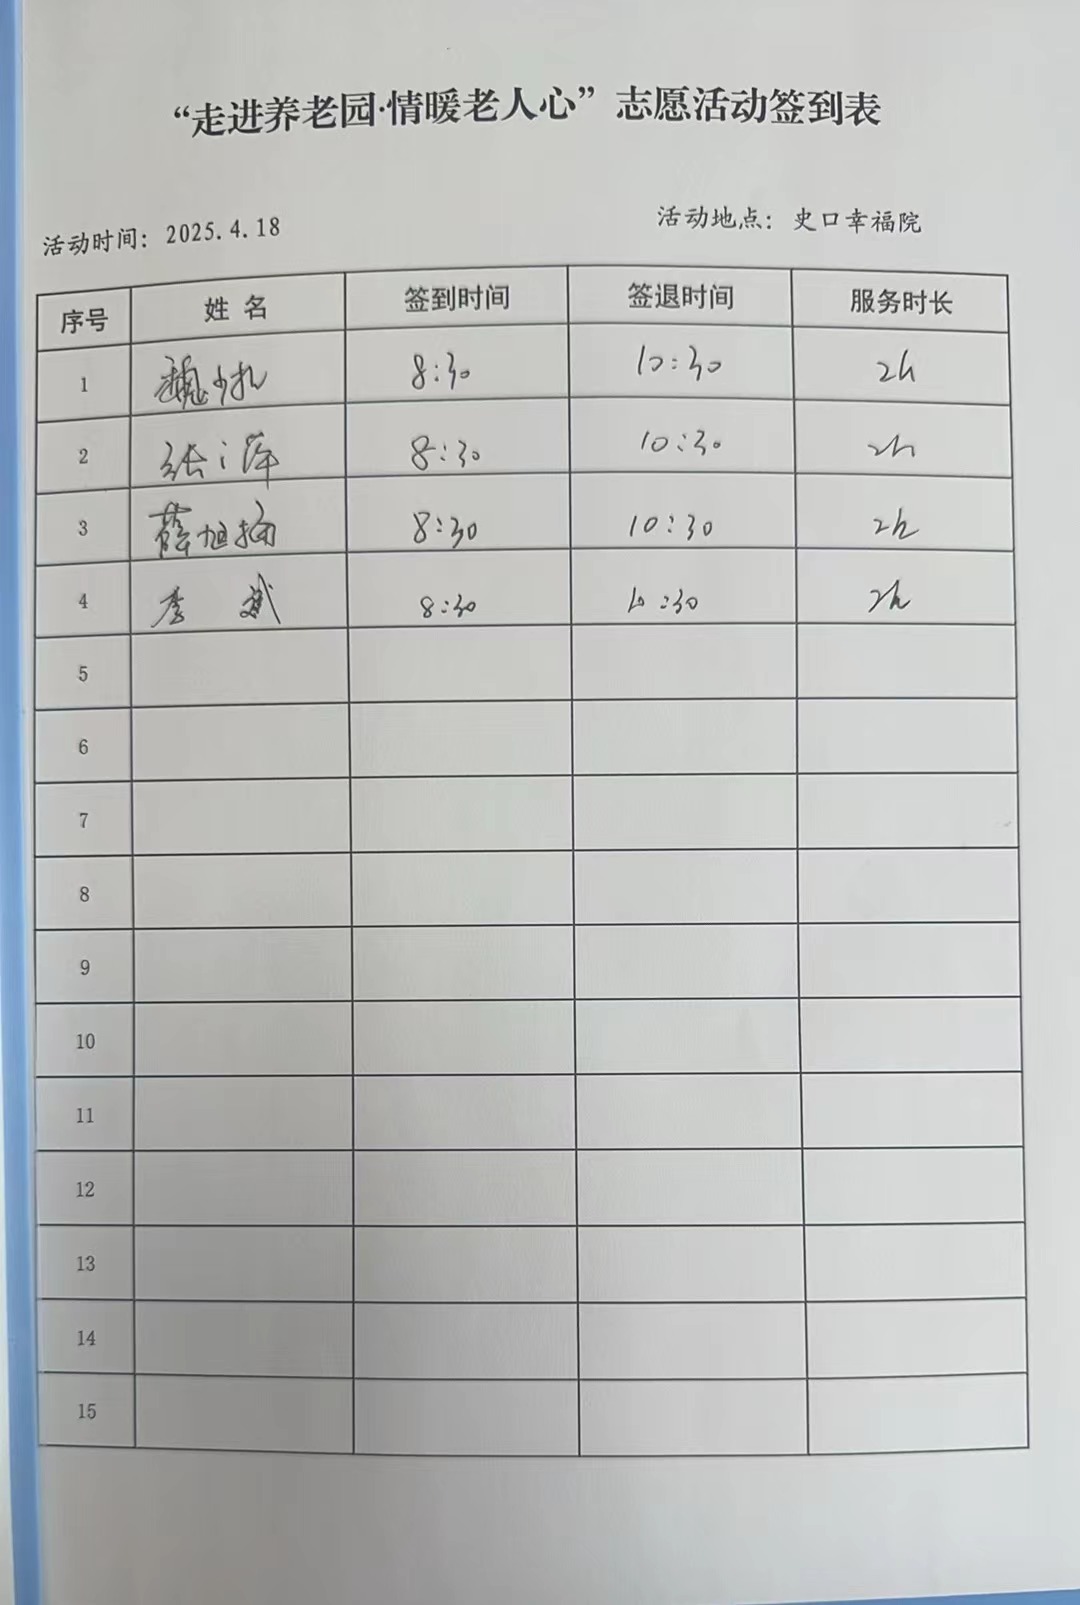 “走进养老园·情暖老人心”志愿活动签到表
活动时间：2025.4.18 活动地点：史口幸福院
序号 姓名 签到时间 签退时间 服务时长
1 魏 8:30 10:30 2h
2 张 萍 8:30 10:30 2h
3 薛旭 8:30 10:30 2h
4 李斌 8:30 10:30 2h
5
6
7
8
9
10
11
12
13
14
15